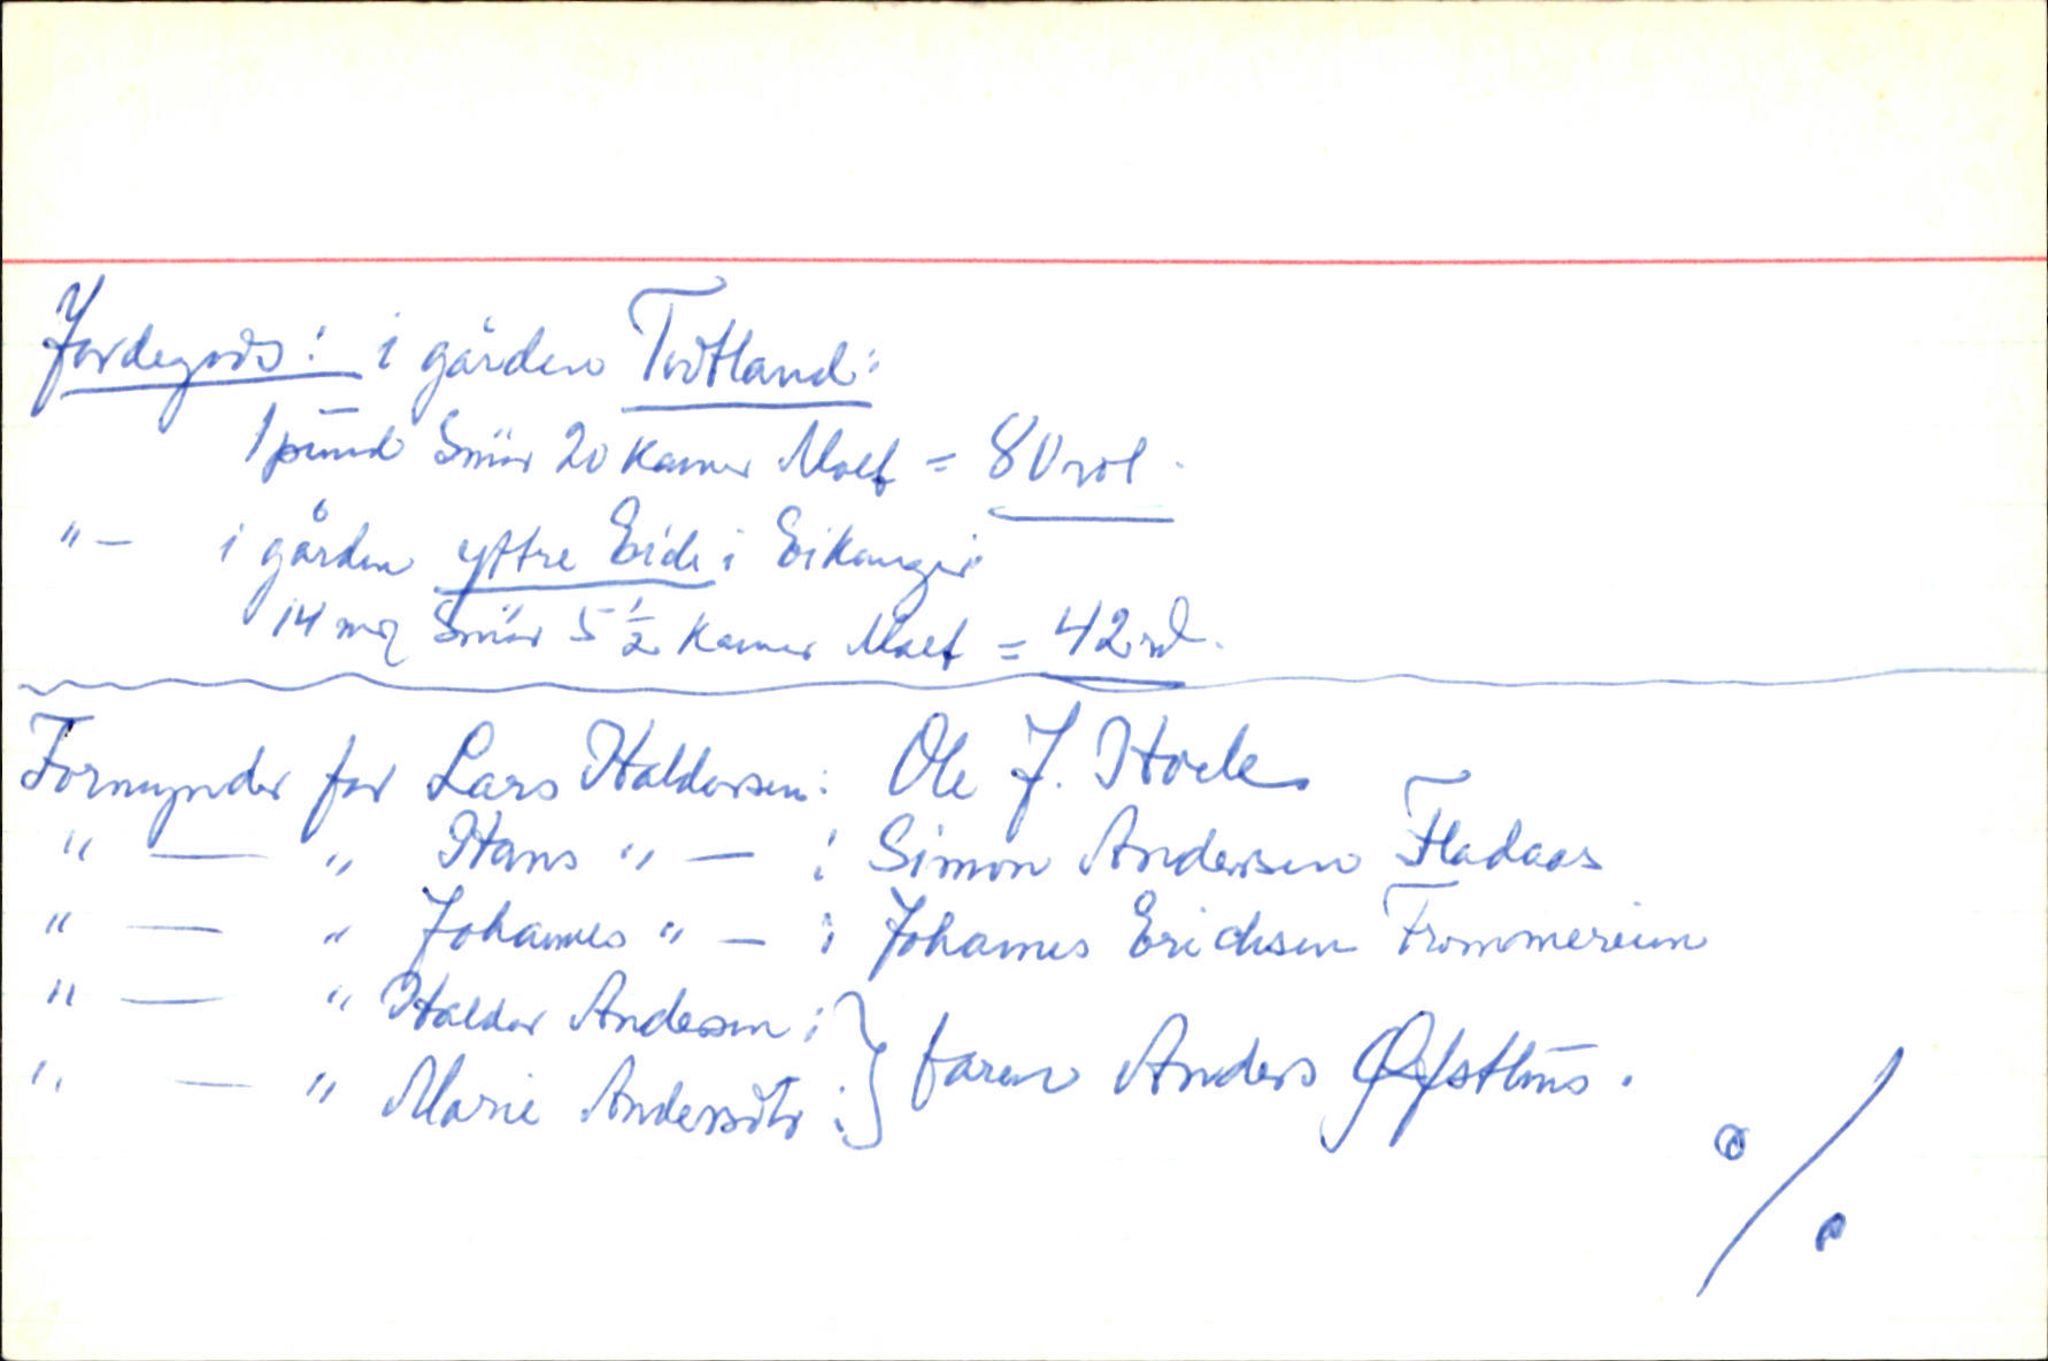 Jordegods: i gården Totland:
1 pund Smör 20 Kanner Malt = 80 rdl.
"— i gården yttre Eide i Eikanger
14 mrq Smör 5 ½ Kanner Malt = 42 rd.
Formynder for Lars Haldorsen: Ole J. Hole
" — " Hans " — : Simon Andersen Fladaas
" — " Johannes " — : Johannes Erichsen Frommereim
" — " Haldor Andersen :
" — " Marie Andersdtr : } faren Anders Øfsthus.